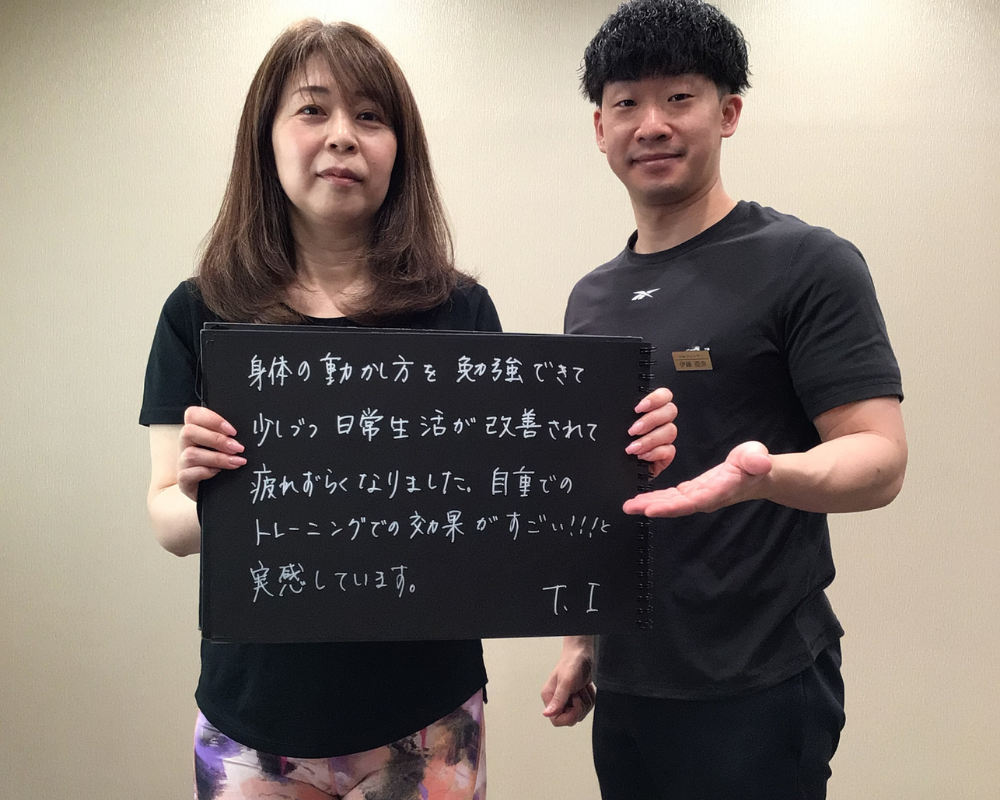 身体の動かし方を勉強できて
少しづつ日常生活が改善されて
疲れずらくなりました。自重での
トレーニングでの効果がすごい!!!と
実感しています。
T. I
伊藤